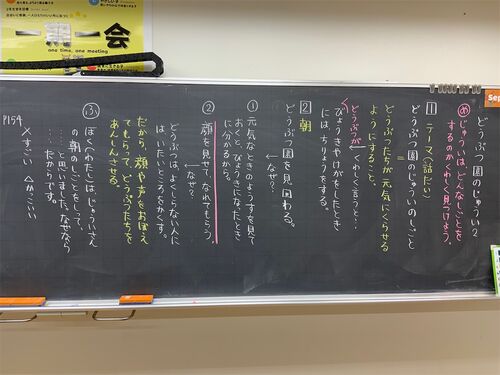 どうぶつ園のじゅうい2
め じゅういは、どんなしごとを
するのかくわしく見つけよう。
1 テーマ(話だい)
どうぶつ園のじゅういのしごと
=
どうぶつたちが元気にくらせる
ようにすること。
くわしく言うと…
どうぶつが
びょうきやけがをしたとき
には、ちりょうをする。
2 朝
どうぶつ園を見回る。
なぜ?
① 元気なときのようすを見て
おくと、びょうきになったとき
に分かるから。
② 顔を見せて、なれてもらう。
なぜ?
どうぶつは、よくしらない人に
は、いたいところをかくす。
だから、顔や声をおぼえ
てもらって、どうぶつたちを
あんしんさせる。
ふ
ぼく(わたし)は、じゅういさん
の朝のしごとをして、
……と思いました。なぜなら
……だからです。
×すごい △かっこいい
P154
一期一会
one time, one meeting
Sep